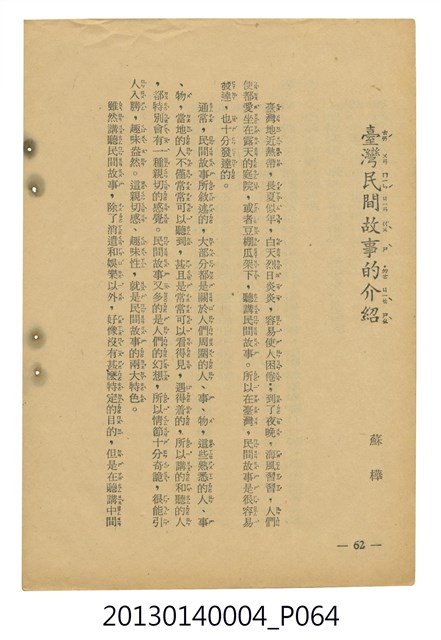 臺灣民間故事的介紹
蘇樺
臺灣地近熱帶，長夏似年，白天烈日炎炎，容易使人困倦。到了夜晚，海風習習，人們
便都愛坐在露天的庭院，或者豆棚瓜架下，聽講民間故事。所以在臺灣，民間故事是很容易
發達，也十分發達的。
通常，民間故事所敘述的，大部分都是關於人們周圍的人、事、物，這些熟悉的人、事
、物，當地的人不僅常常可以聽到，甚且是常常可以看得見，遇得着的，所以講的和聽的人
，都特別會有一種親切的感覺。民間故事又多的是人們的幻想，所以情節十分奇詭，很能引
人入勝，趣味盎然。這親切感、趣味性，就是民間故事的兩大特色。
雖然講聽民間故事，除了消遣和娛樂以外，好像沒有甚麼特定的目的，但是在聽講中間
— 62 —
20130140004_P064